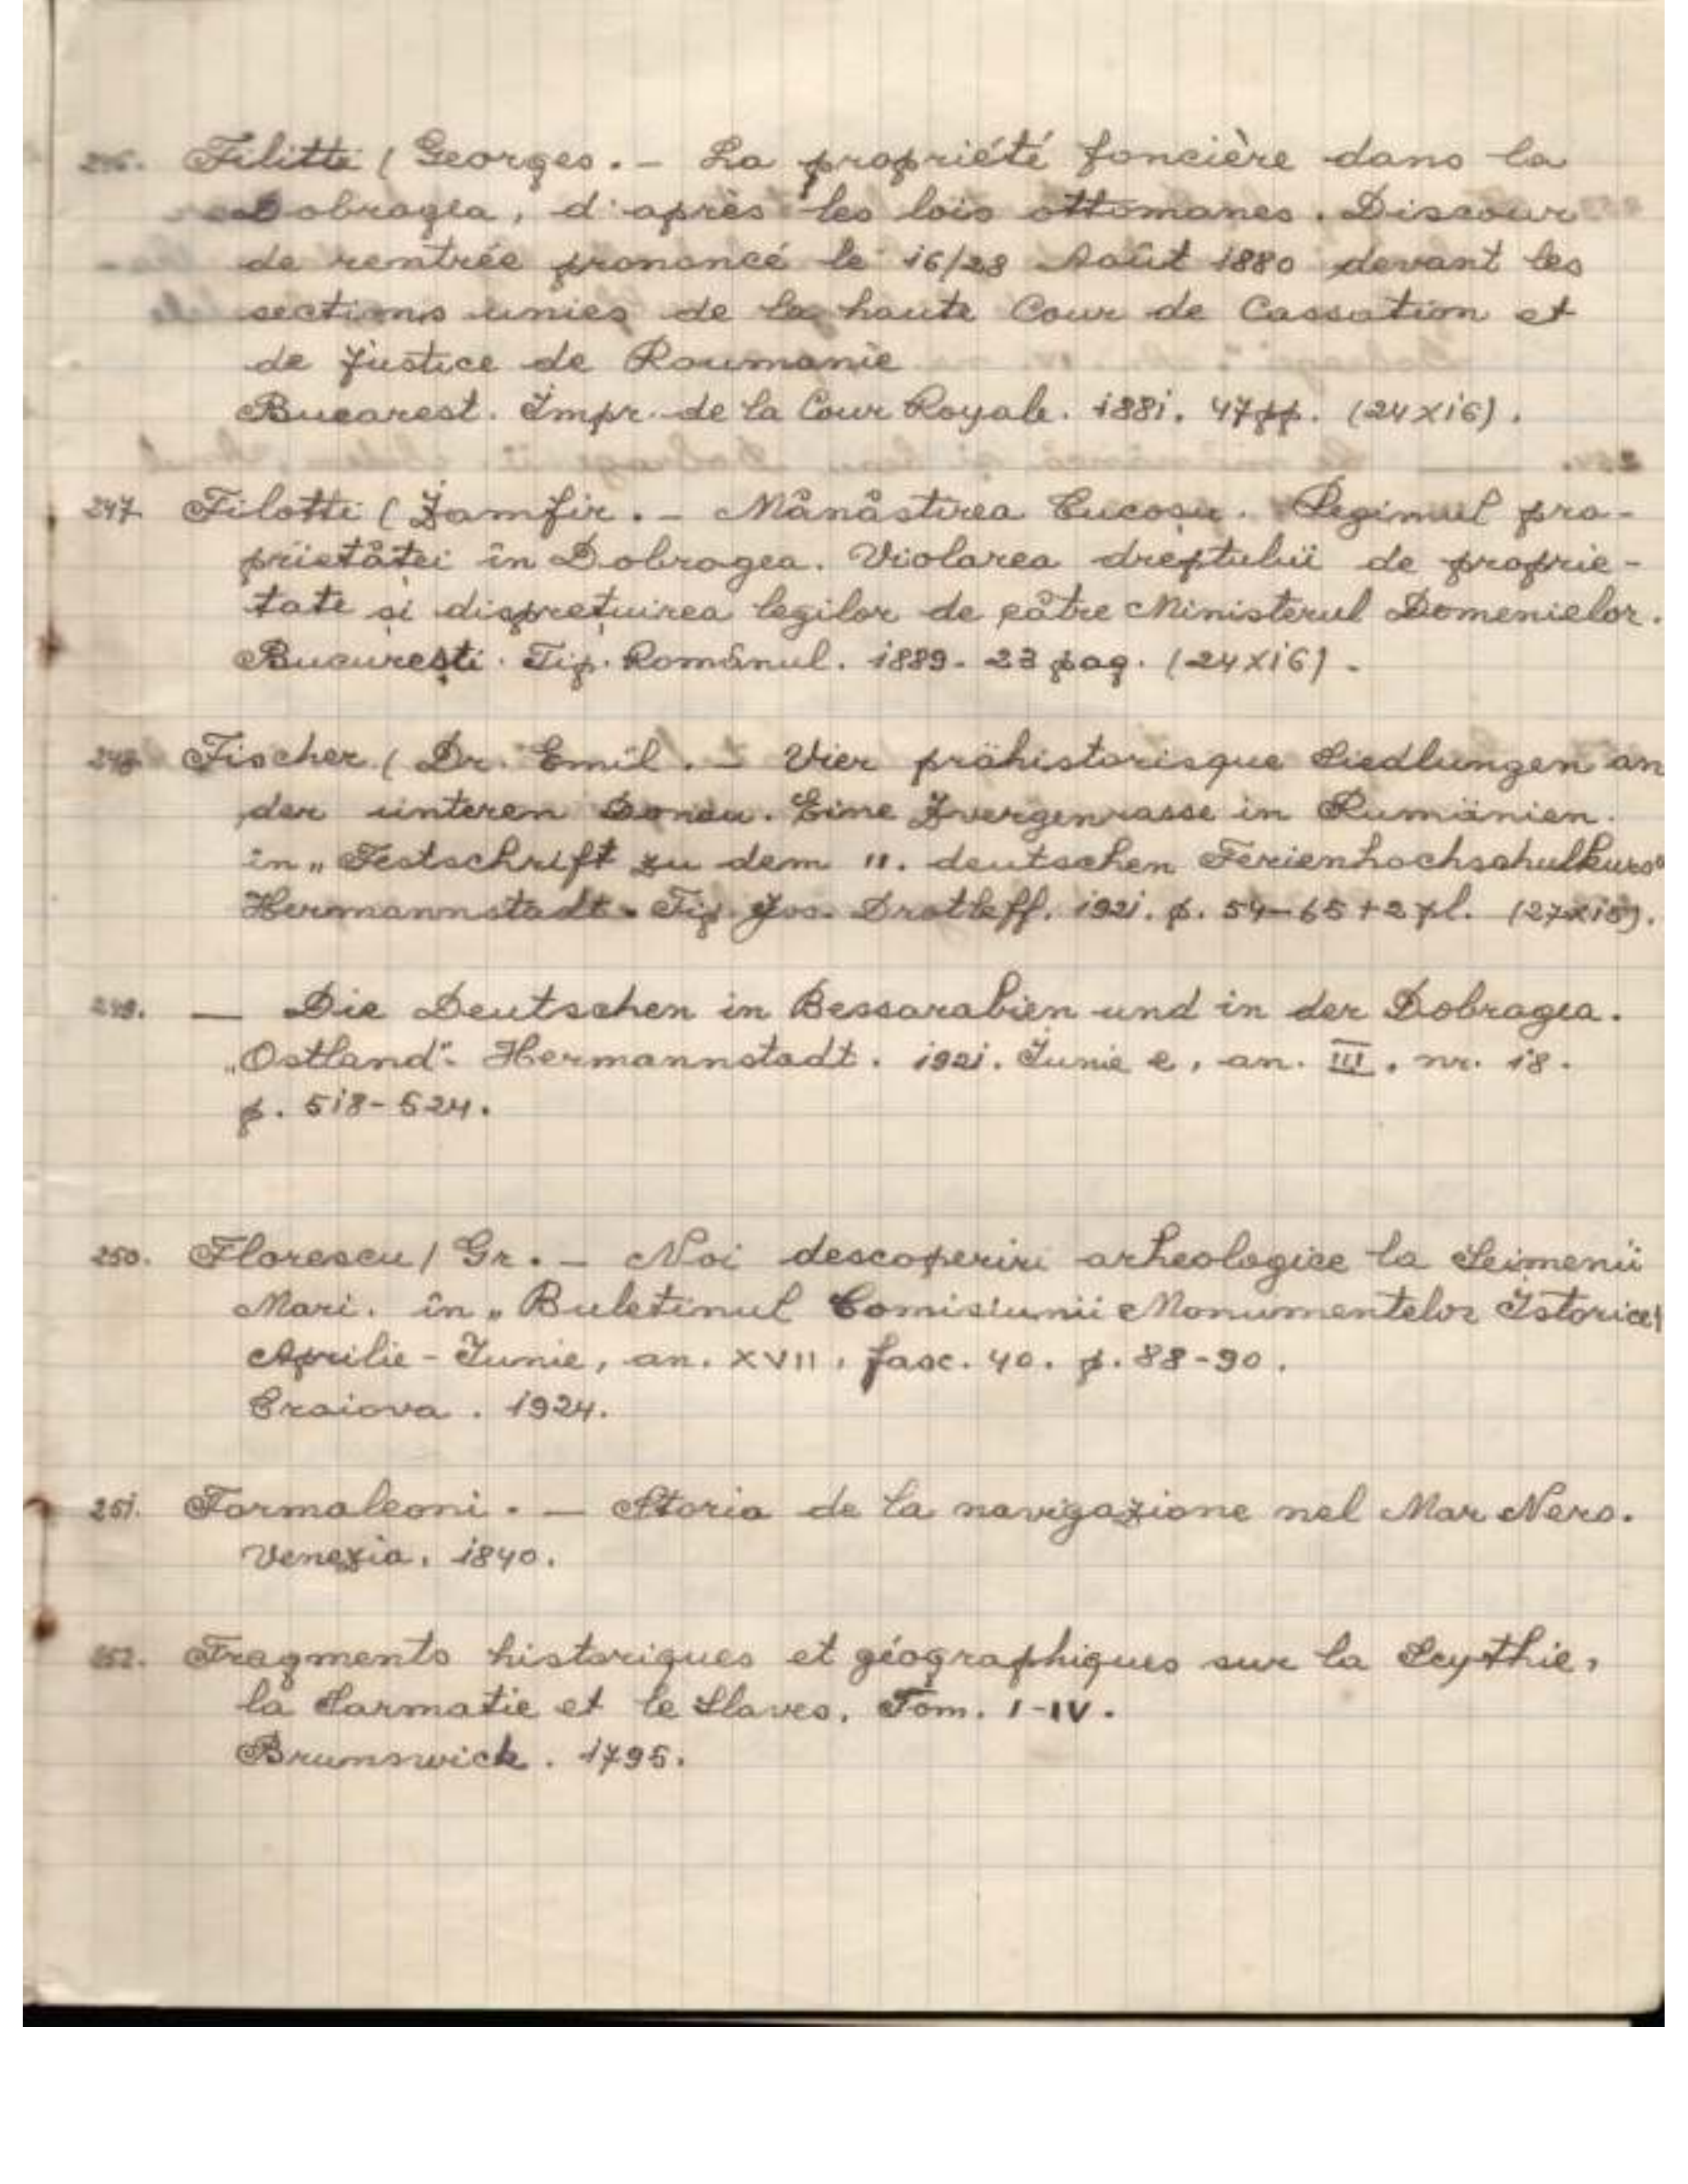 246. Filitti / Georges. – La propriété foncière dans la
Dobrogea, d'après les lois ottomanes. Discour
de rentrée prononcé le 16/28 Août 1880 devant les
sections unies de la haute Cour de Cassation et
de justice de Roumanie
Bucarest. Impr. de la Cour Royale. 1881. 47 pp. (24x16).
247. Filotti ( Zamfir. – Mânâstirea Cucoșu. Regimul pro-
prietâței în Dobrogea. Violarea dreptului de proprie-
tate și disprețuirea legilor de câtre Ministerul Domenielor.
București. Tip. Românul. 1889. 23 pag. (24x16).
248. Fischer / Dr. Emil. – Vier prähistorisque Siedlungen an
der unteren Donau. Eine Zwergenrasse in Rumänien.
in „Festschrift zu dem II. deutschen Ferienhochschulkurs"
Hermannstadt. Tip. Jos. Drotleff. 1921. p. 54–65 + 2 pl. (27x19).
249. — Die Deutschen in Bessarabien und in der Dobrogea.
„Ostland". Hermannstadt. 1921. Iunie 2, an. III. nr. 18.
p. 518-524.
250. Florescu / Gr. – Noi descoperiri arheologice la Seimenii
Mari. în „Buletinul Comisiunii Monumentelor Istorice"
Aprilie - Iunie, an. XVII, fasc. 40. p. 88-90.
Craiova. 1924.
251. Formaleoni. – Storia de la navigazione nel Mar Nero.
Venezia. 1840.
252. Fragments historiques et géographiques sur la Scythie,
la Sarmatie et le Slaves. Tom. I-IV.
Brunswick. 1795.